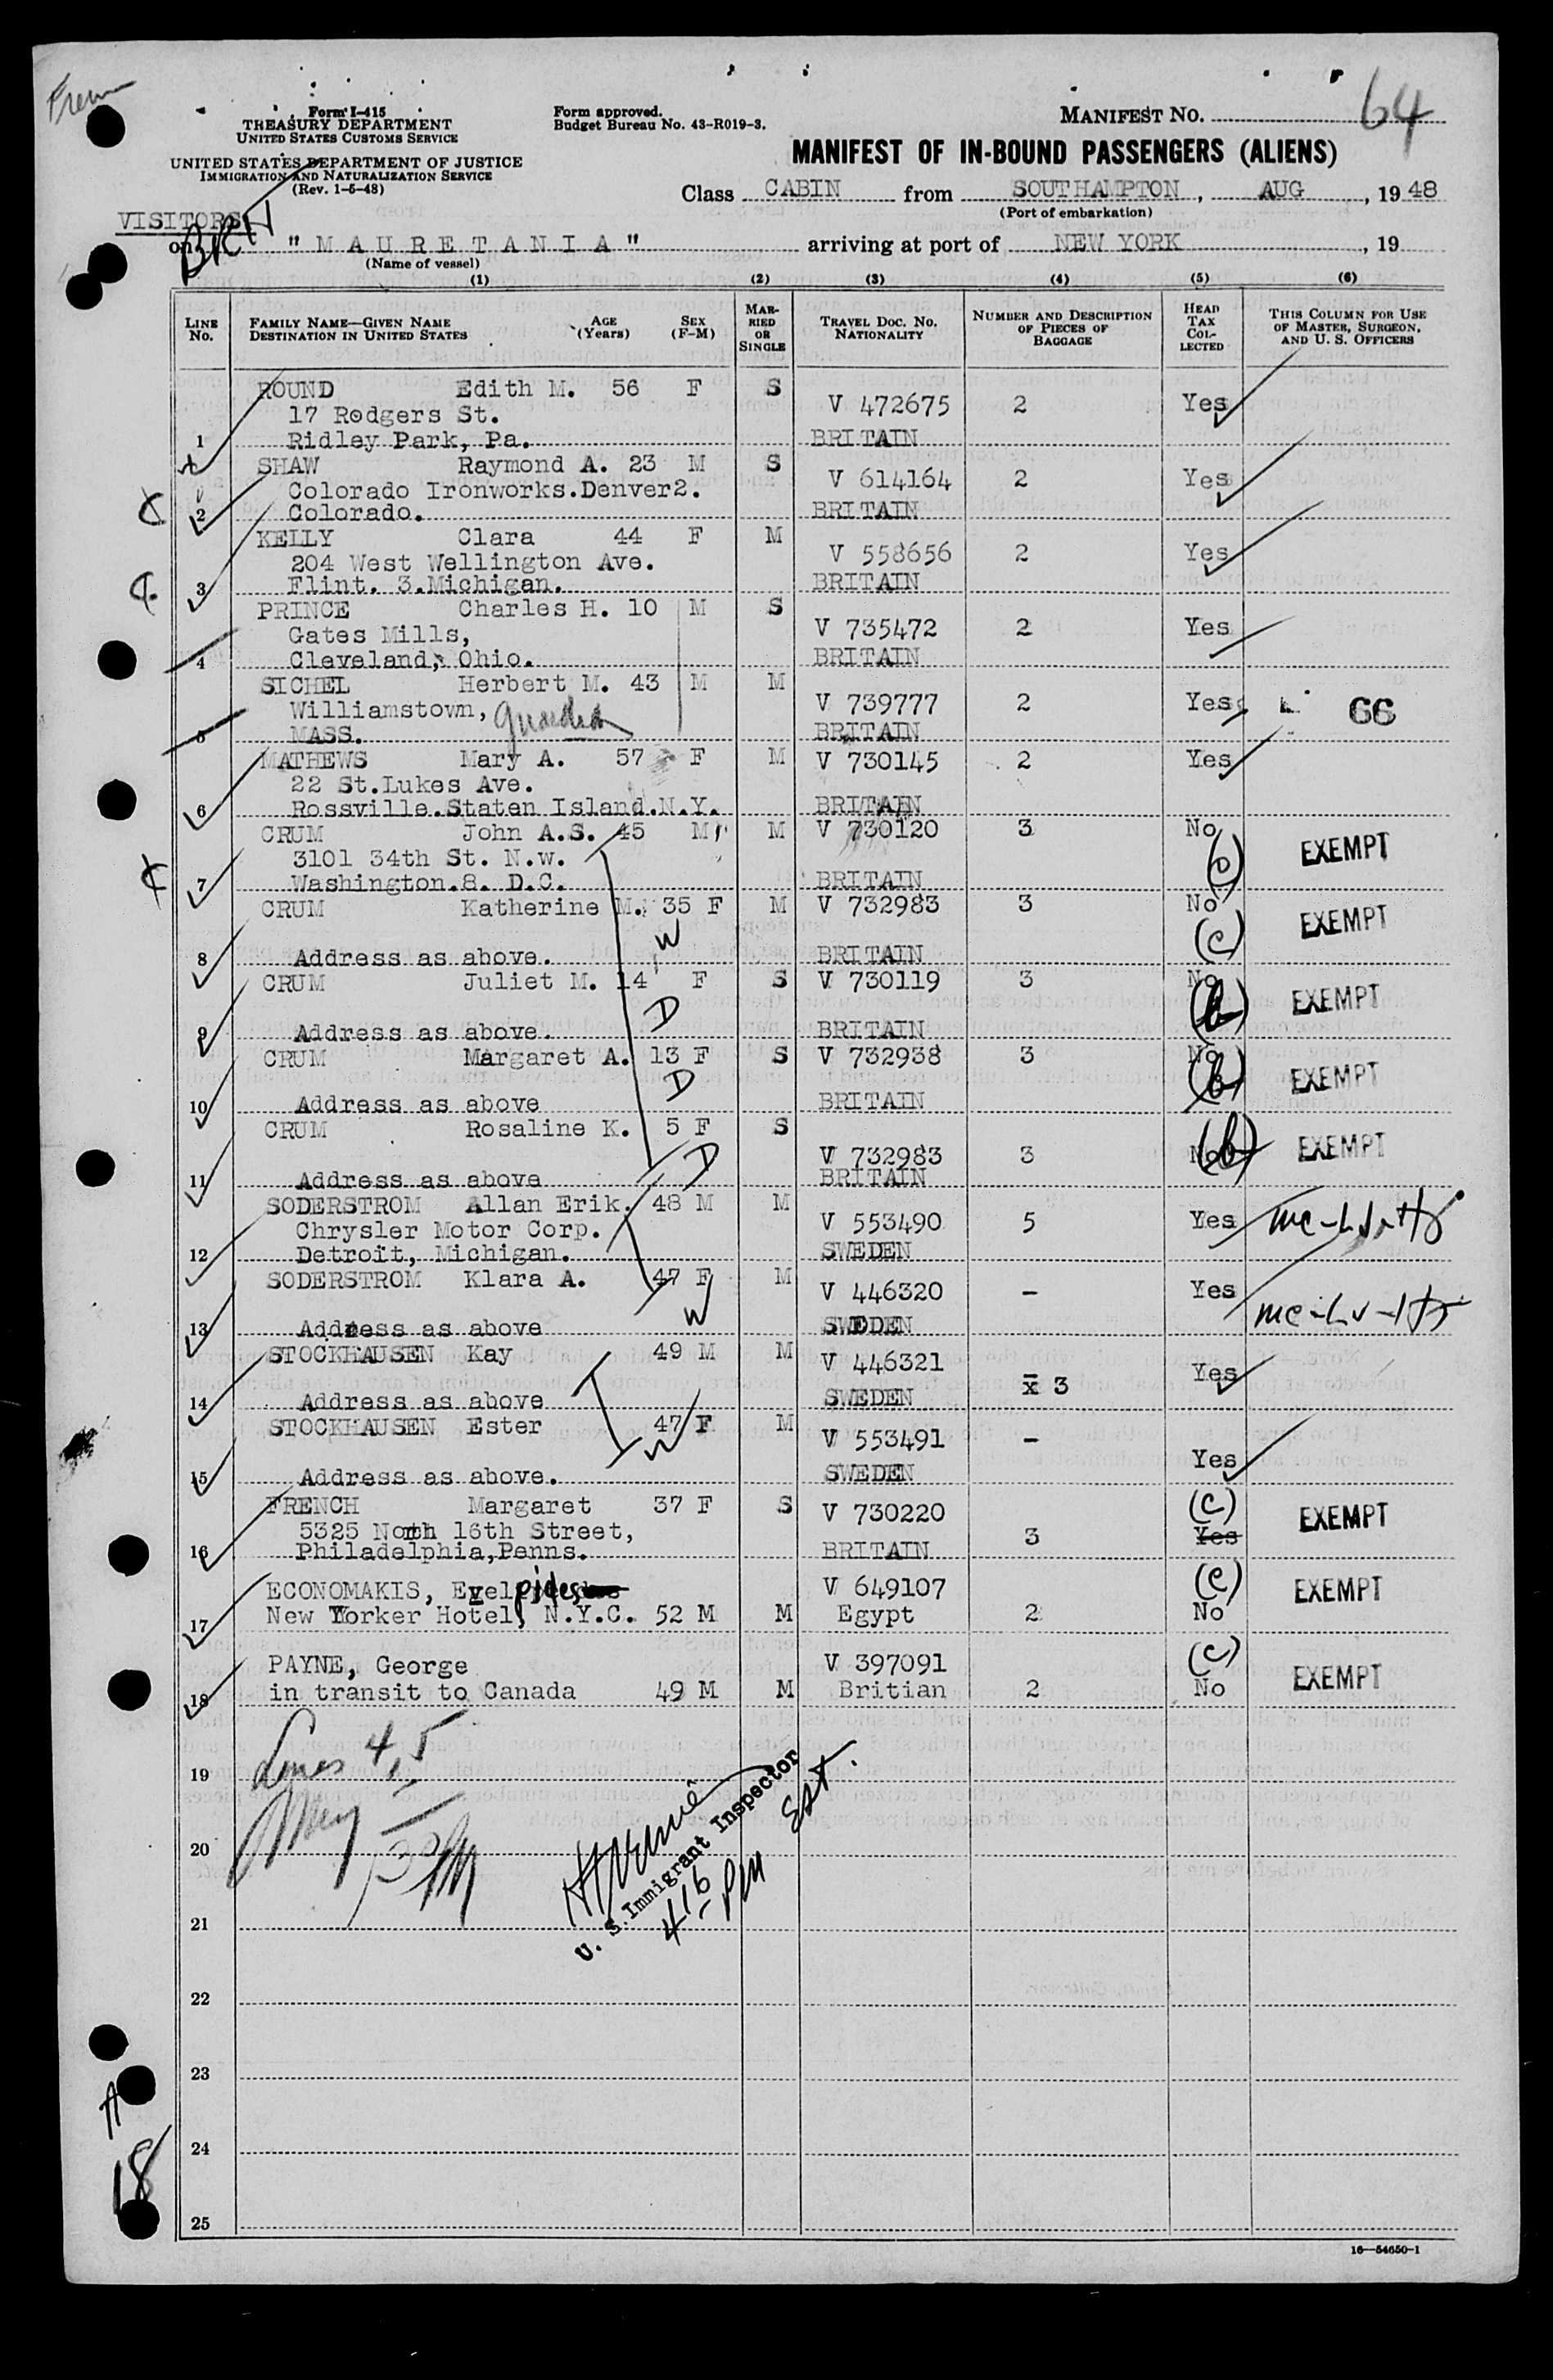 Form I-415
TREASURY DEPARTMENT
UNITED STATES CUSTOMS SERVICE
UNITED STATES DEPARTMENT OF JUSTICE
IMMIGRATION AND NATURALIZATION SERVICE
(Rev. 1-5-48)
Form approved.
Budget Bureau No. 43-R019-3.
MANIFEST NO. 64
MANIFEST OF IN-BOUND PASSENGERS (ALIENS)
Class CABIN from SOUTHAMPTON, AUG, 19 48
(Port of embarkation)
VISITORS
on "MAURETANIA" arriving at port of NEW YORK, 19
(Name of vessel)
(1) (2) (3) (4) (5) (6)
LINE No. FAMILY NAME—GIVEN NAME DESTINATION IN UNITED STATES AGE (Years) SEX (F-M) MARRIED OR SINGLE TRAVEL DOC. NO. NATIONALITY NUMBER AND DESCRIPTION OF PIECES OF BAGGAGE HEAD TAX COLLECTED THIS COLUMN FOR USE OF MASTER, SURGEON, AND U. S. OFFICERS
ROUND Edith M. 56 F S
17 Rodgers St. V 472675 2 Yes
1 Ridley Park, Pa. BRITAIN
SHAW Raymond A. 23 M S
Colorado Ironworks.Denver2. V 614164 2 Yes
2 Colorado. BRITAIN
KELLY Clara 44 F M
204 West Wellington Ave. V 558656 2 Yes
3 Flint. 3.Michigan. BRITAIN
PRINCE Charles H. 10 M S
Gates Mills, V 735472 2 Yes
4 Cleveland, Ohio. BRITAIN
SICHEL Herbert M. 43 M M
Williamstown, guardian V 739777 2 Yes 66
5 MASS. BRITAIN
MATHEWS Mary A. 57 F M V 730145 2 Yes
22 St.Lukes Ave.
6 Rossville.Staten Island.N.Y. BRITAIN
CRUM John A.S. 45 M M V 730120 3 No
3101 34th St. N.w. (c) EXEMPT
7 Washington.8. D.C. BRITAIN
CRUM Katherine M. 35 F M V 732983 3 No
W (c) EXEMPT
8 Address as above. BRITAIN
CRUM Juliet M. 14 F S V 730119 3 No
D (b) EXEMPT
9 Address as above. BRITAIN
CRUM Margaret A. 13 F S V 732938 3 No
D (b) EXEMPT
10 Address as above BRITAIN
CRUM Rosaline K. 5 F S
D V 732983 3 No (b) EXEMPT
11 Address as above BRITAIN
SODERSTROM Allan Erik. 48 M M
Chrysler Motor Corp. V 553490 5 Yes
12 Detroit, Michigan. SWEDEN
SODERSTROM Klara A. 47 F M
W V 446320 - Yes
13 Address as above SWEDEN
STOCKHAUSEN Kay 49 M M
V 446321 x 3 Yes
14 Address as above SWEDEN
STOCKHAUSEN Ester 47 F M
W V 553491 - Yes
15 Address as above. SWEDEN
FRENCH Margaret 37 F S V 730220 (c) EXEMPT
5325 North 16th Street, 3 Yes
16 Philadelphia,Penns. BRITAIN
ECONOMAKIS, Evelpides V 649107 (c) EXEMPT
17 New Yorker Hotel, N.Y.C. 52 M M Egypt 2 No
PAYNE, George V 397091 (c) EXEMPT
18 in transit to Canada 49 M M Britian 2 No
Lines 4, 5
19
20
U. S. Immigrant Inspector
416 PM EST.
21
22
23
24
25
18
16—54650-1